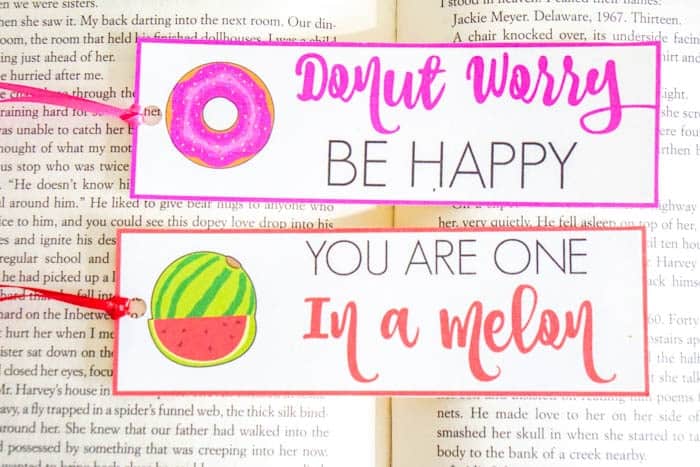 Donut Worry
BE HAPPY
YOU ARE ONE
In a melon
hen she saw it. My back darting into the next room. Our din-
room, the room that held his finished dollhouses. I was a child
ing just ahead of her.
e hurried after me.
through the
training hard for
was unable to catch her b
thought of what my mot
us stop who was twice
"He doesn't know hi
al around him." He liked to give bear hugs to anyone who
ce to him, and you could see this dopey love drop into his
es and ignite his des
regular school and
he had picked up a l
hard than he fell int
d on the Inbetween
t hurt her when I me
sister sat down on the
closed her eyes, focu
Mr. Harvey's house in
avy, a fly trapped in a spider's funnel web, the thick silk bind-
around her. She knew that our father had walked into the
possessed by something that was creeping into her now.
Jackie Meyer. Delaware, 1967. Thirteen.
A chair knocked over, its underside facing
her, very quietly. He fell asleep on top of her.
60. Forty
nets. He made love to her on her side of
smashed her skull in when she started to ta
body to the bank of a creek nearby.